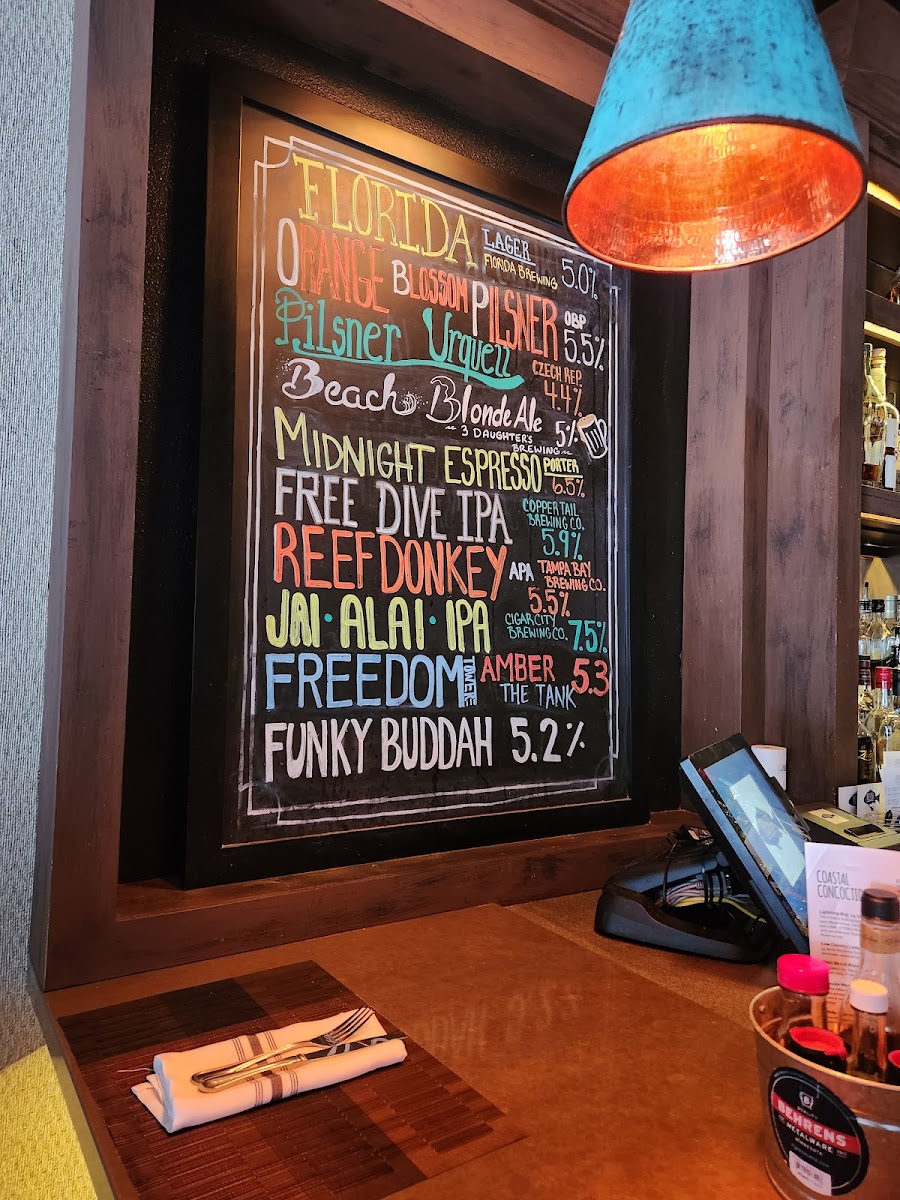 FLORIDA LAGER FLORIDA BREWING 5.0%
ORANGE BLOSSOM PILSNER OBP 5.5%
Pilsner Urquell CZECH REP. 4.4%
Beach Blonde Ale 5%
~ 3 DAUGHTER'S BREWING ~
MIDNIGHT ESPRESSO PORTER 6.5%
FREE DIVE IPA COPPERTAIL BREWING CO. 5.9%
REEF DONKEY APA TAMPA BAY BREWING CO. 5.5%
JAI·ALAI·IPA CIGAR CITY BREWING CO. 7.5%
FREEDOM TOWER AMBER THE TANK 5.3
FUNKY BUDDAH 5.2%
COASTAL
BEHRENS
METALWARE
MINNESOTA